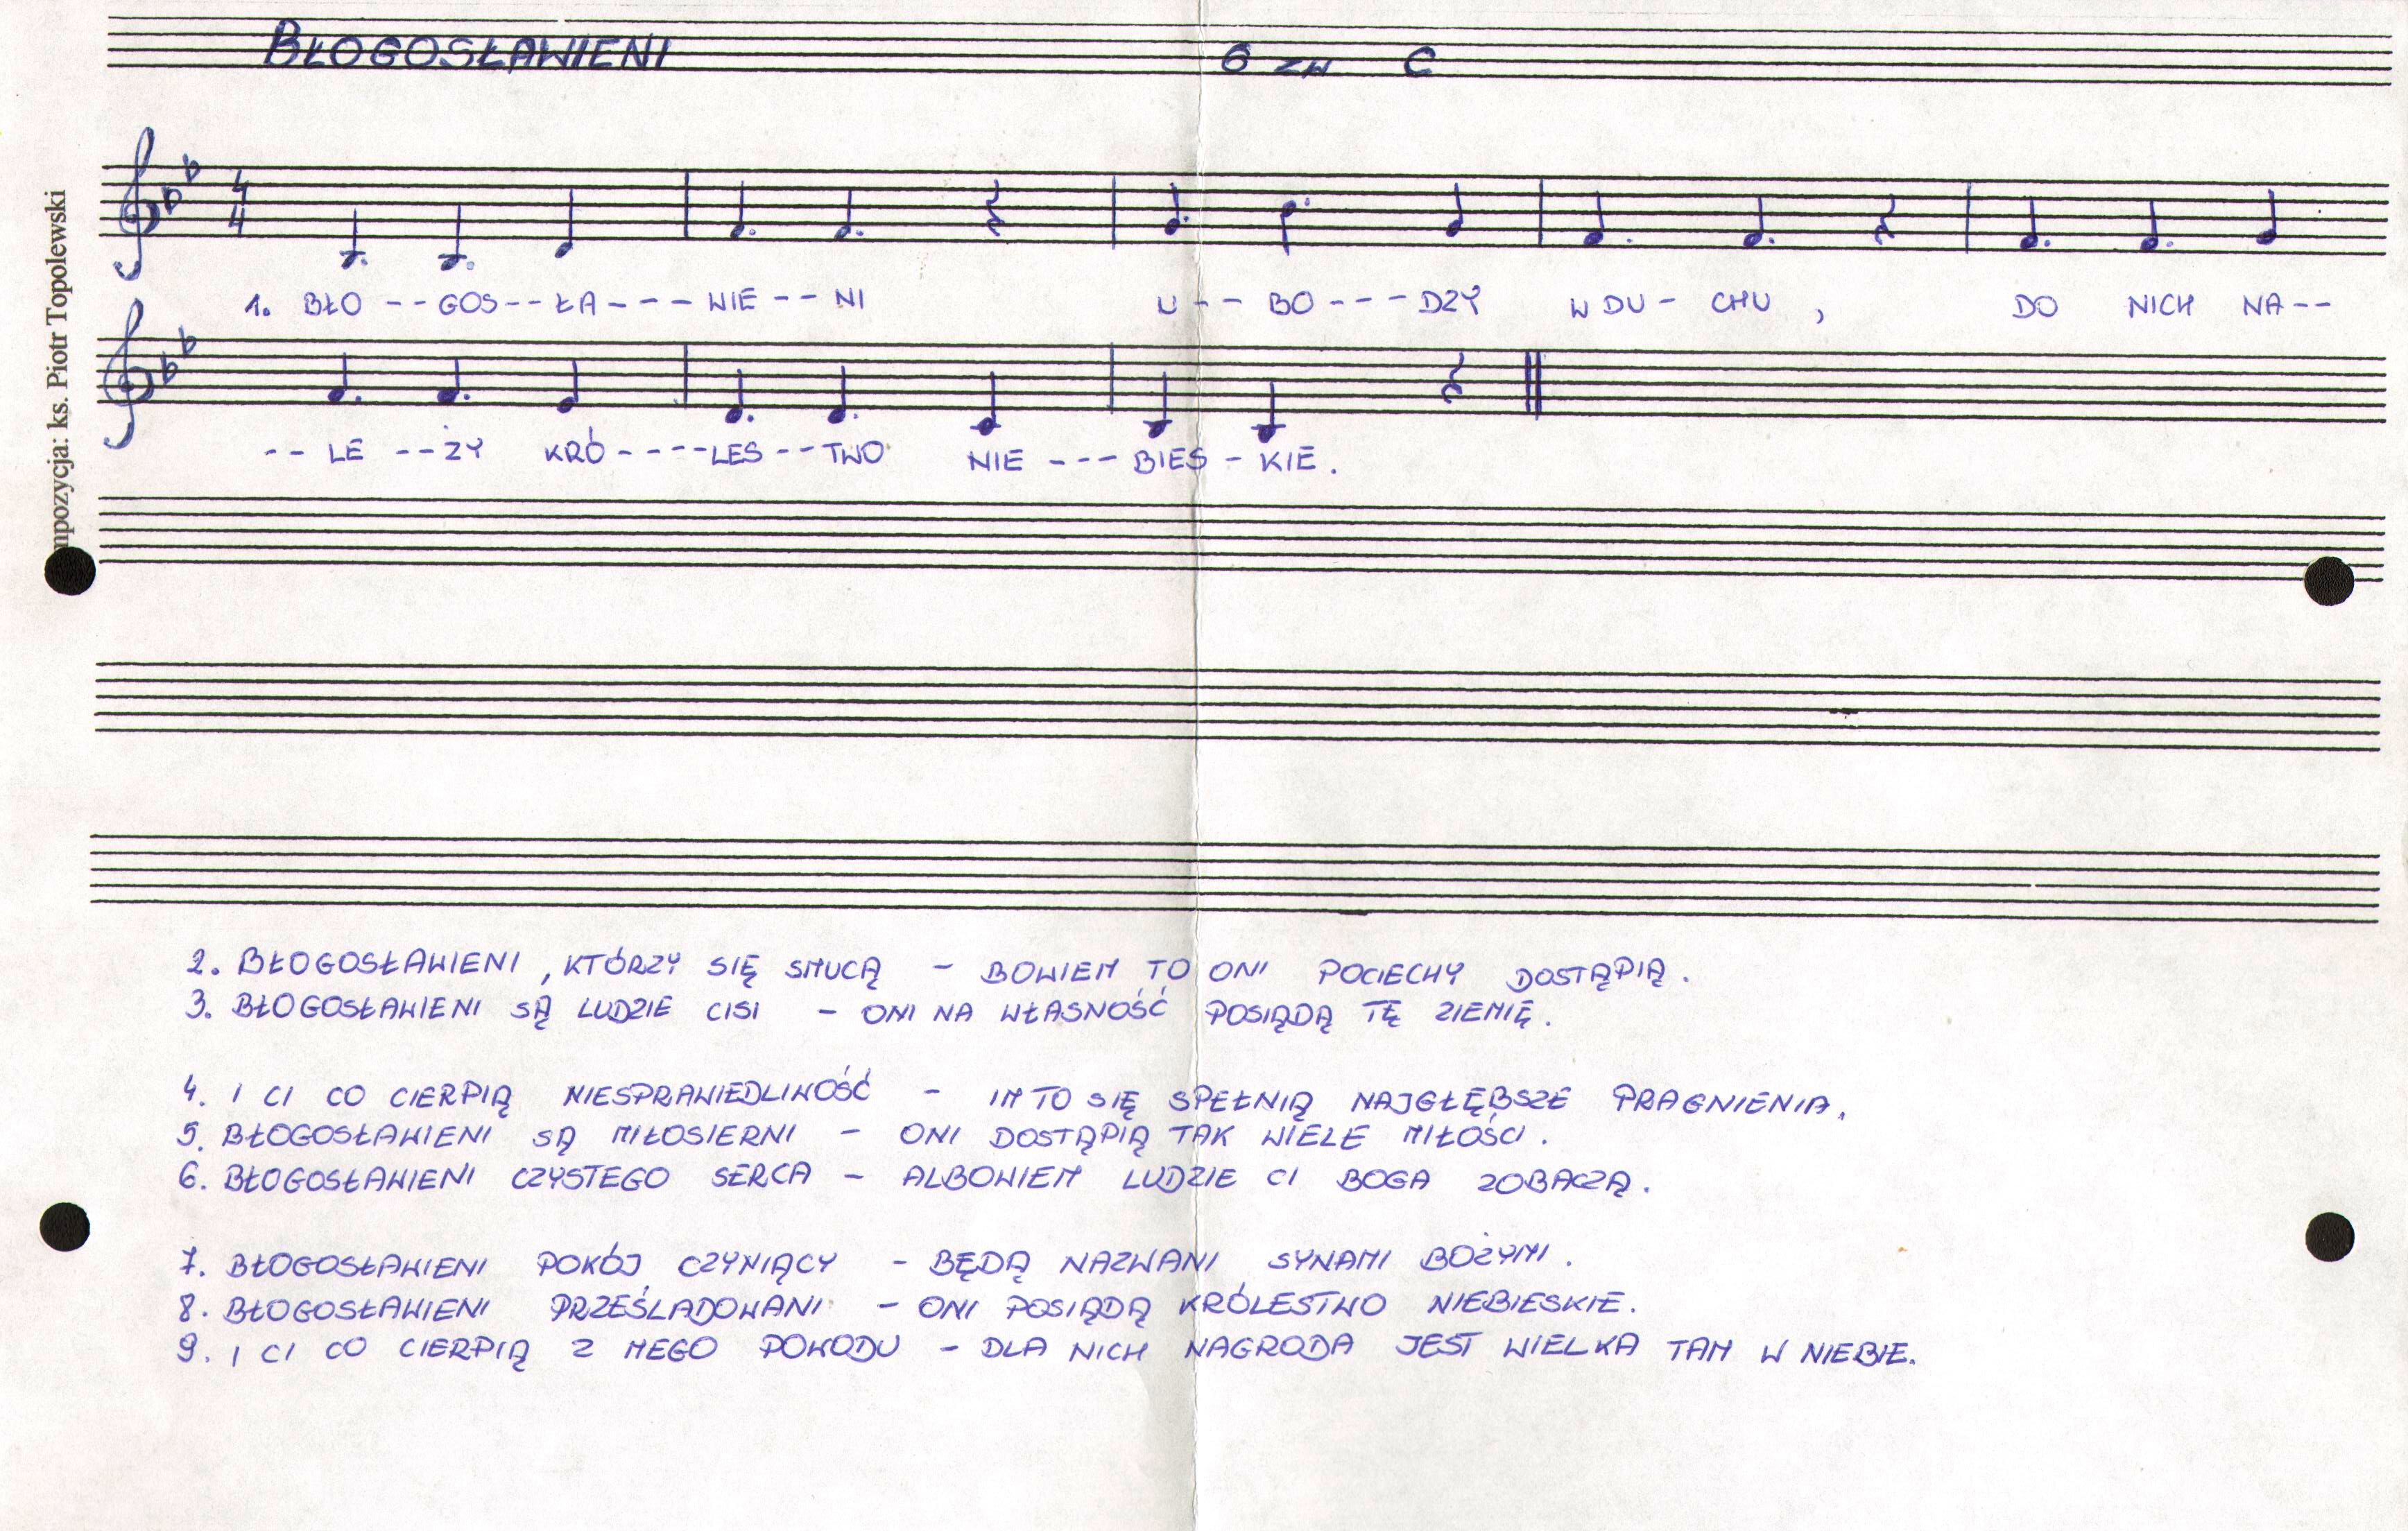 BŁOGOSŁAWIENI 6 ZW C
mpozycja: ks. Piotr Topolewski
4
4
1. BŁO -- GOS -- ŁA --- WIE -- NI U -- BO --- DZY W DU - CHU , DO NICH NA --
-- LE -- ŻY KRÓ ---- LES -- TWO NIE --- BIES - KIE .
2. BŁOGOSŁAWIENI , KTÓRZY SIĘ SMUCĄ - BOWIEM TO ONI POCIECHY DOSTĄPIĄ .
3. BŁOGOSŁAWIENI SĄ LUDZIE CISI - ONI NA WŁASNOŚĆ POSIĄDĄ TĘ ZIEMIĘ .
4. I CI CO CIERPIĄ NIESPRAWIEDLIWOŚĆ - IM TO SIĘ SPEŁNIĄ NAJGŁĘBSZE PRAGNIENIA .
5. BŁOGOSŁAWIENI SĄ MIŁOSIERNI - ONI DOSTĄPIĄ TAK WIELE MIŁOŚCI .
6. BŁOGOSŁAWIENI CZYSTEGO SERCA - ALBOWIEM LUDZIE CI BOGA ZOBACZĄ .
7. BŁOGOSŁAWIENI POKÓJ CZYNIĄCY - BĘDĄ NAZWANI SYNAMI BOŻYMI .
8. BŁOGOSŁAWIENI PRZEŚLADOWANI - ONI POSIĄDĄ KRÓLESTWO NIEBIESKIE .
9. I CI CO CIERPIĄ Z MEGO POWODU - DLA NICH NAGRODA JEST WIELKA TAM W NIEBIE .